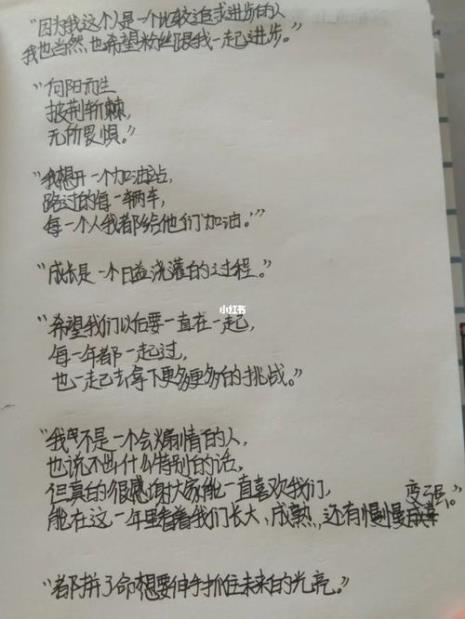 “因为我这个人是一个比较追求进步的人
我也当然,也希望粉丝跟我一起进步。”
“向阳而生
披荆斩棘,
无所畏惧。”
“我想开一个加油站,
路过的每一辆车,
每一个人我都给他们加油。”
“成长是一个日益浇灌的过程。”
小红书
“希望我们以后要一直在一起,
每一年都一起过,
也一起去拿下更多更多的挑战。”
“我不是一个会煽情的人,
也说不出什么特别的话。
但真的很感谢大家能一直喜欢我们,
能在这一年里看着我们长大、成熟,还有慢慢变强。”
“都拼了命想要伸手抓住未来的光亮。”